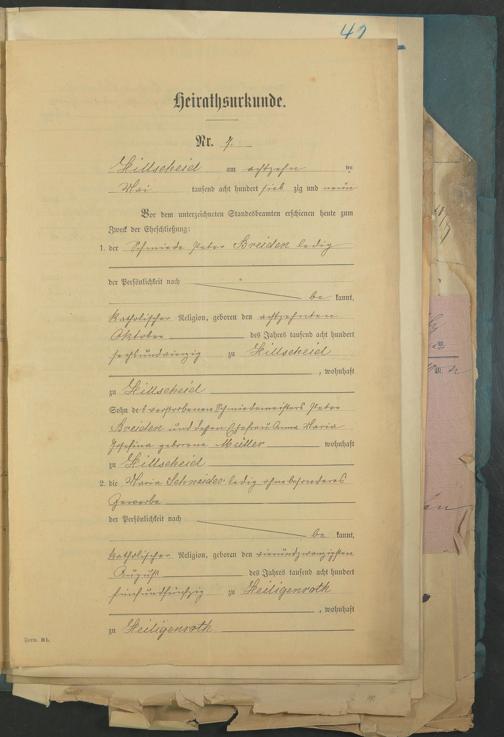 49
Heirathsurkunde.
Nr. 7.
Hillscheid am achtzehn ten
Mai tausend acht hundert sieb zig und neun
Vor dem unterzeichneten Standesbeamten erschienen heute zum
Zweck der Eheschließung:
1. der Schmiede Peter Breiden ledig
der Persönlichkeit nach
be kannt,
katholischer Religion, geboren den achtzehnten
Oktober des Jahres tausend acht hundert
sechsundvierzig zu Hillscheid
, wohnhaft
zu Hillscheid
Sohn des verstorbenen Schmiedemeisters Peter
Breiden und dessen Ehefrau Anna Maria
Josephina geborene Müller wohnhaft
zu Hillscheid
2. die Maria Schneider ledig ohne besonderes
Gewerbe
der Persönlichkeit nach
be kannt,
katholischer Religion, geboren den vierundzwanzigsten
August des Jahres tausend acht hundert
fünfundfünfzig zu Heiligenroth
, wohnhaft
zu Heiligenroth
Form. B1.